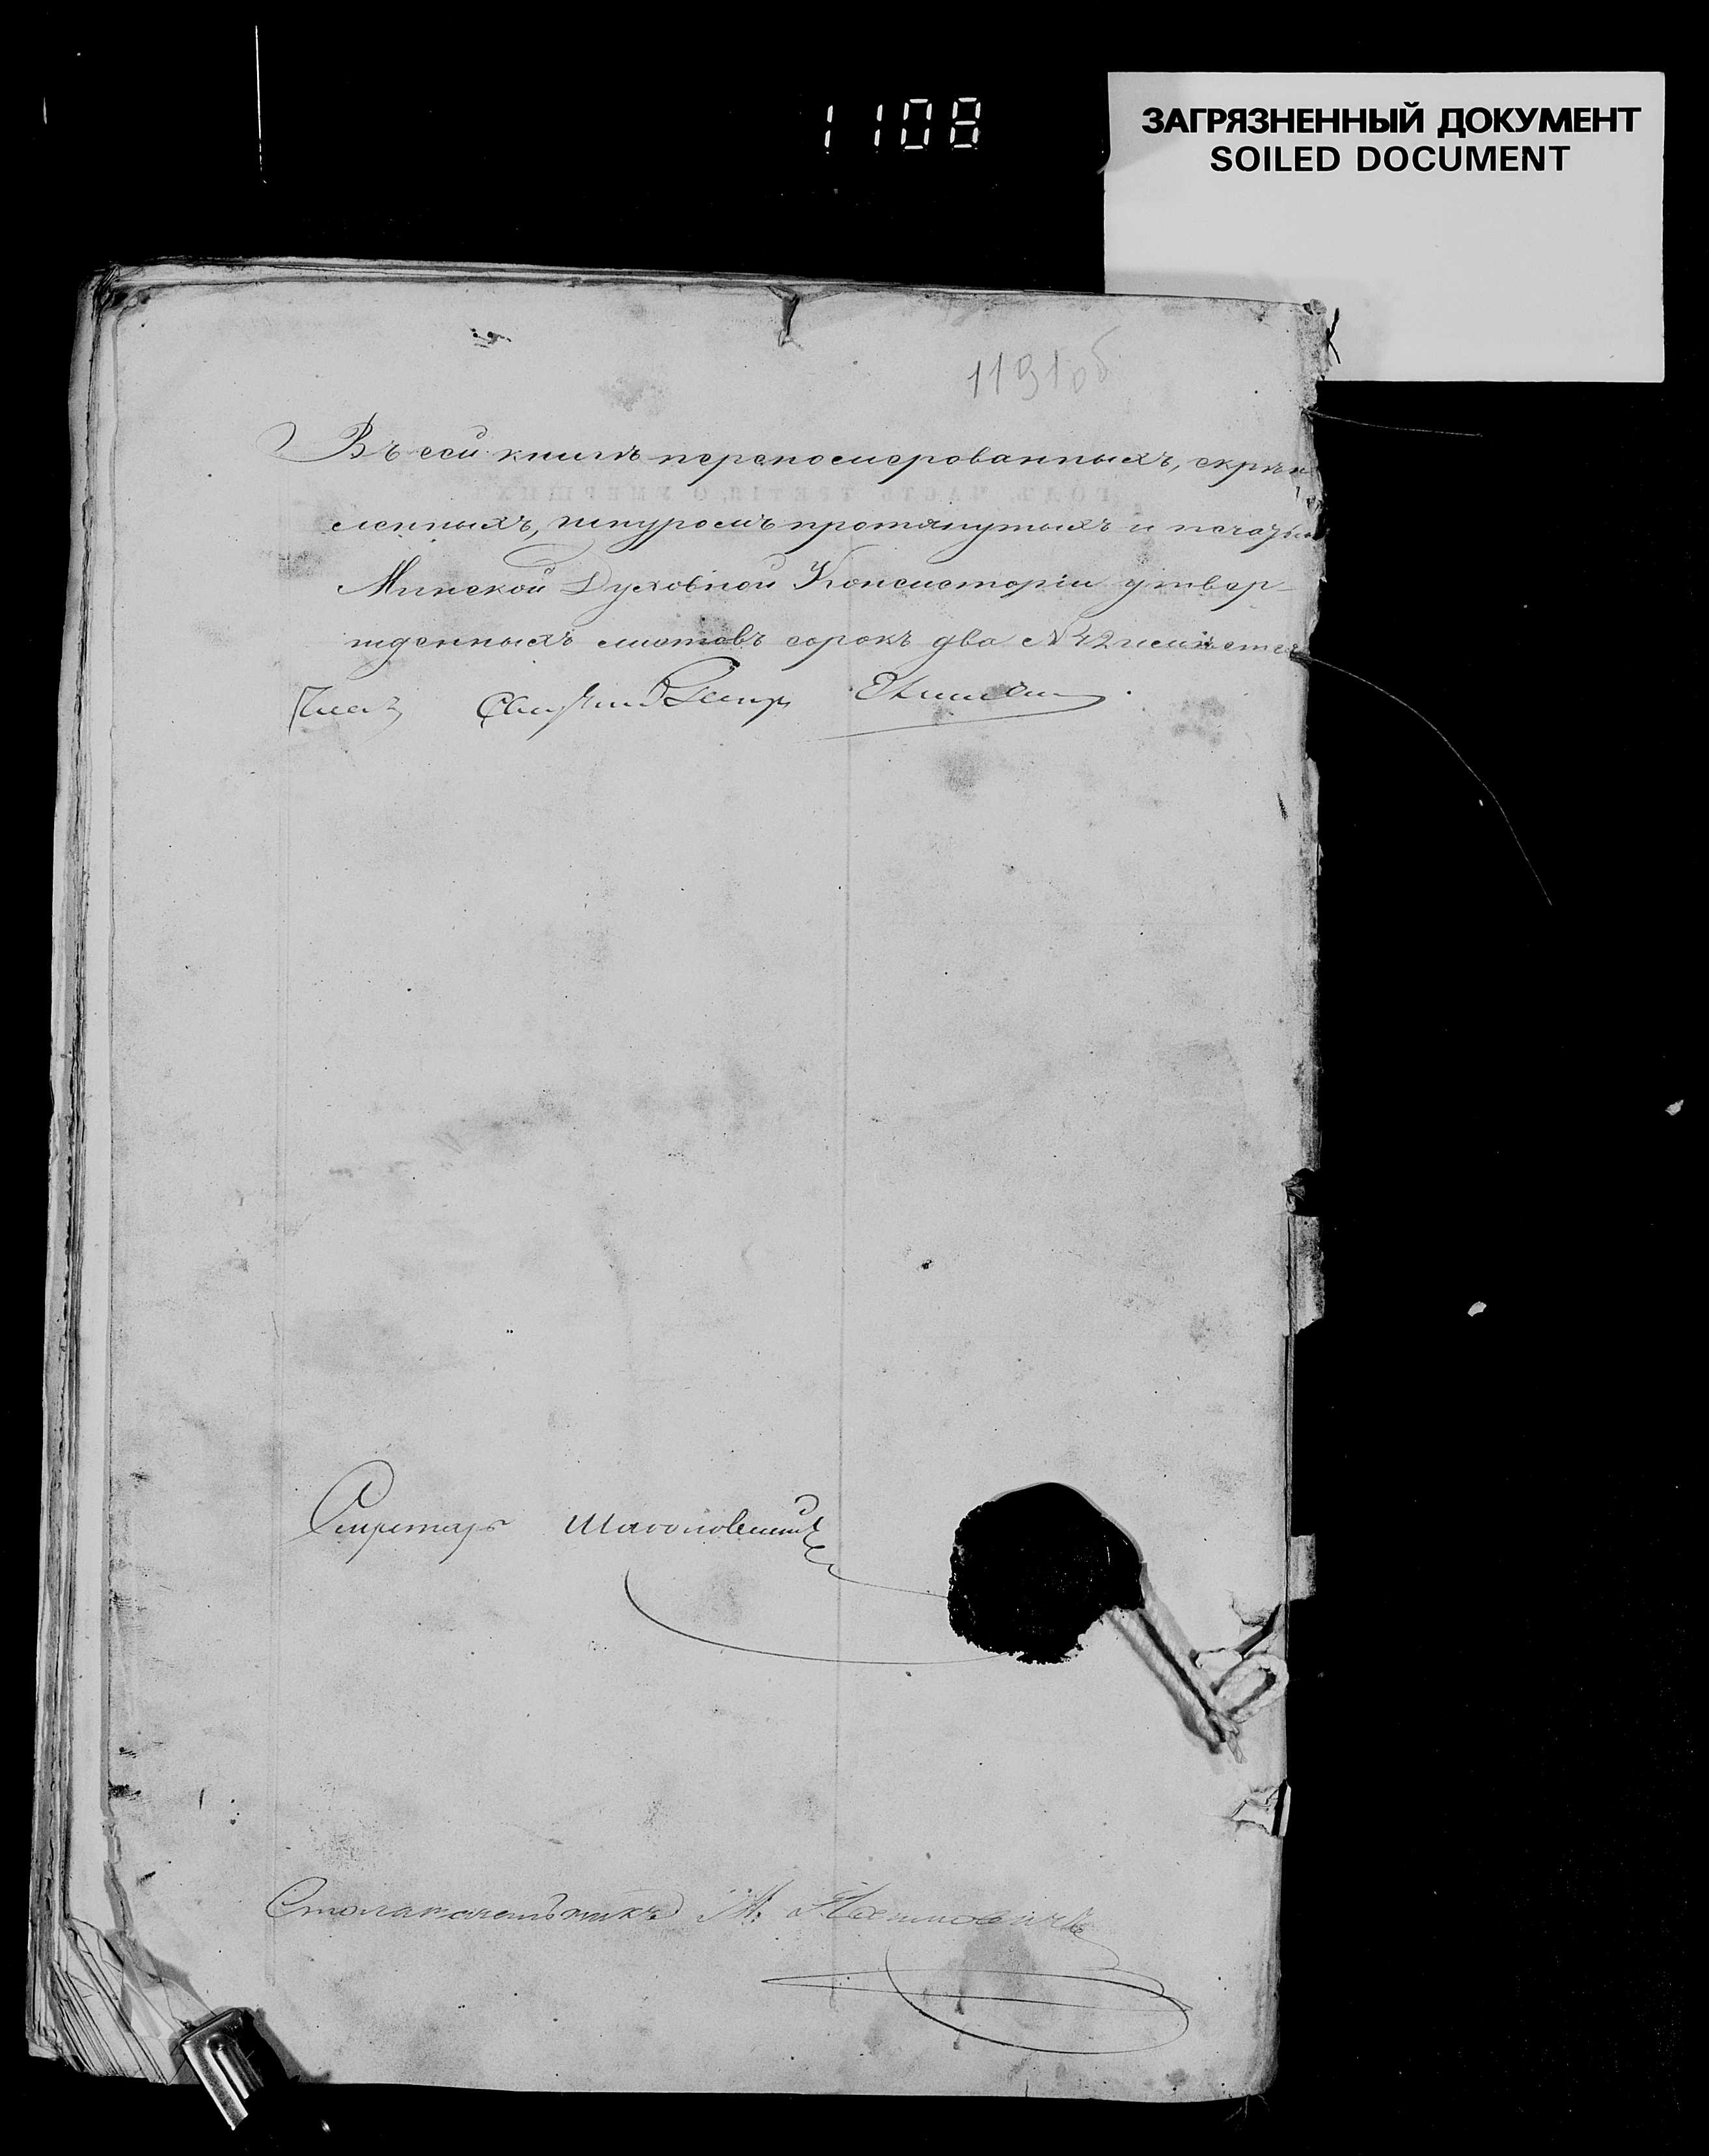 1108
ЗАГРЯЗНЕННЫЙ ДОКУМЕНТ
SOILED DOCUMENT
1191об
Въ сей книгѣ перепомерованныхъ, скрѣп
ленныхъ, шнуромъ протянутыхъ и печатью
Минской Духовной Консисторіи утвер-
жденныхъ листовъ сорокъ два №42 имѣется
Членъ Священникъ Петръ
Секретарь
Столоначальникъ